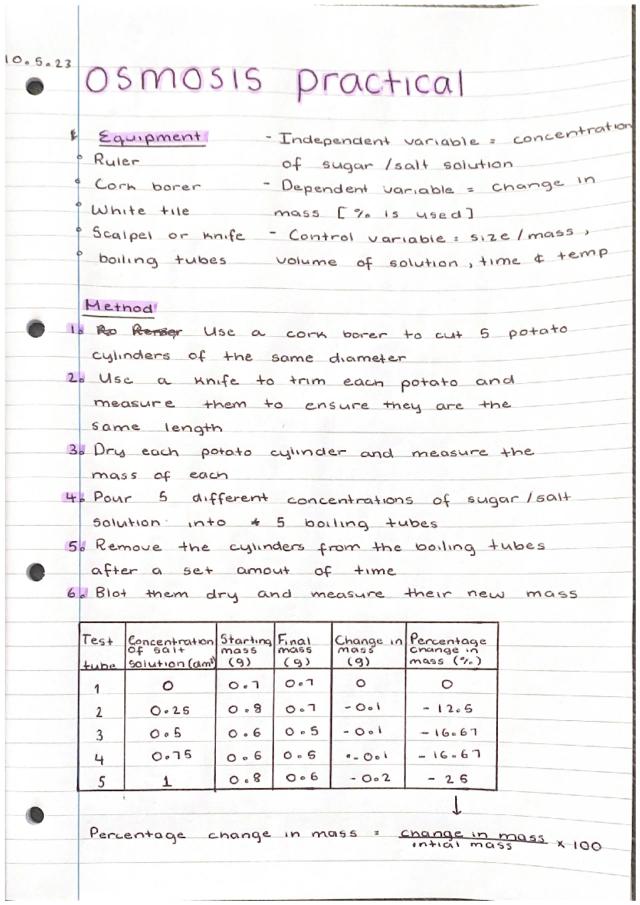 10.5.23
OSMOSIS practical
Equipment
• Ruler
• Cork borer
• White tile
• Scalpel or knife
• boiling tubes
- Independent variable = concentration
of sugar /salt solution
- Dependent variable = change in
mass [% is used]
- Control variable = size/mass,
volume of solution, time & temp
Method
1. Use a cork borer to cut 5 potato
cylinders of the same diameter
2. Use a knife to trim each potato and
measure them to ensure they are the
same length
3. Dry each potato cylinder and measure the
mass of each
4. Pour 5 different concentrations of sugar/salt
solution into 5 boiling tubes
5. Remove the cylinders from the boiling tubes
after a set amout of time
6. Blot them dry and measure their new mass
Test tube | Concentration of salt solution (dm³) | Starting mass (g) | Final mass (g) | Change in mass (g) | Percentage change in mass (%)
1 | 0 | 0.7 | 0.7 | 0 | 0
2 | 0.25 | 0.8 | 0.7 | -0.1 | -12.5
3 | 0.5 | 0.6 | 0.5 | -0.1 | -16.67
4 | 0.75 | 0.6 | 0.5 | -0.1 | -16.67
5 | 1 | 0.8 | 0.6 | -0.2 | -25
↓
Percentage change in mass = change in mass / intial mass × 100